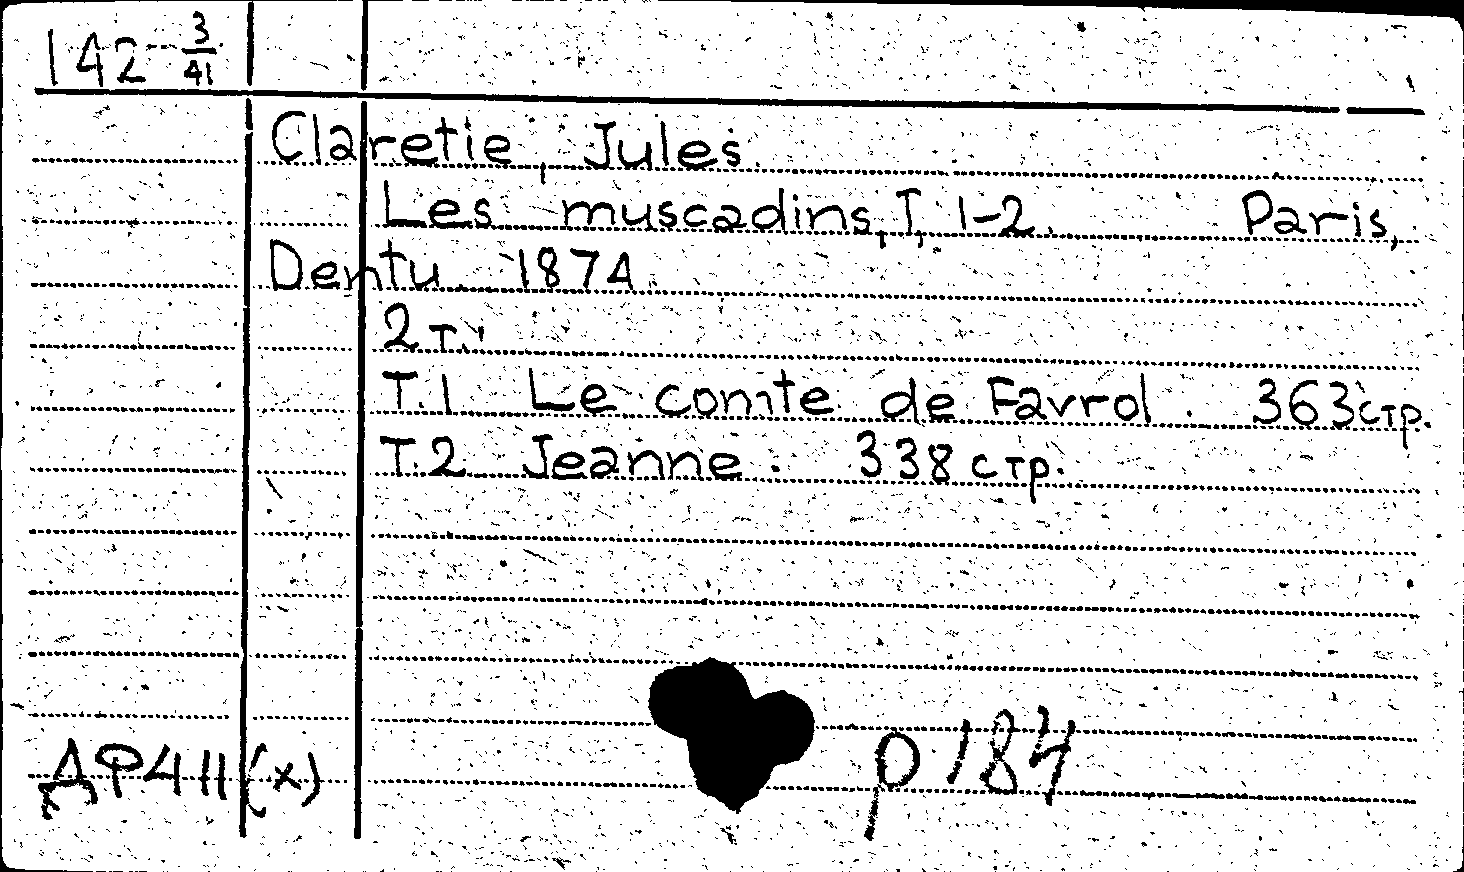 142 3/41
Claretie, Jules.
Les muscadins, T, 1-2. Paris,
Dentu. 1874
2 т.
T.1 Le comte de Favrol. 363 стр.
T.2 Jeanne. 338 стр.
ДР411(x) р184